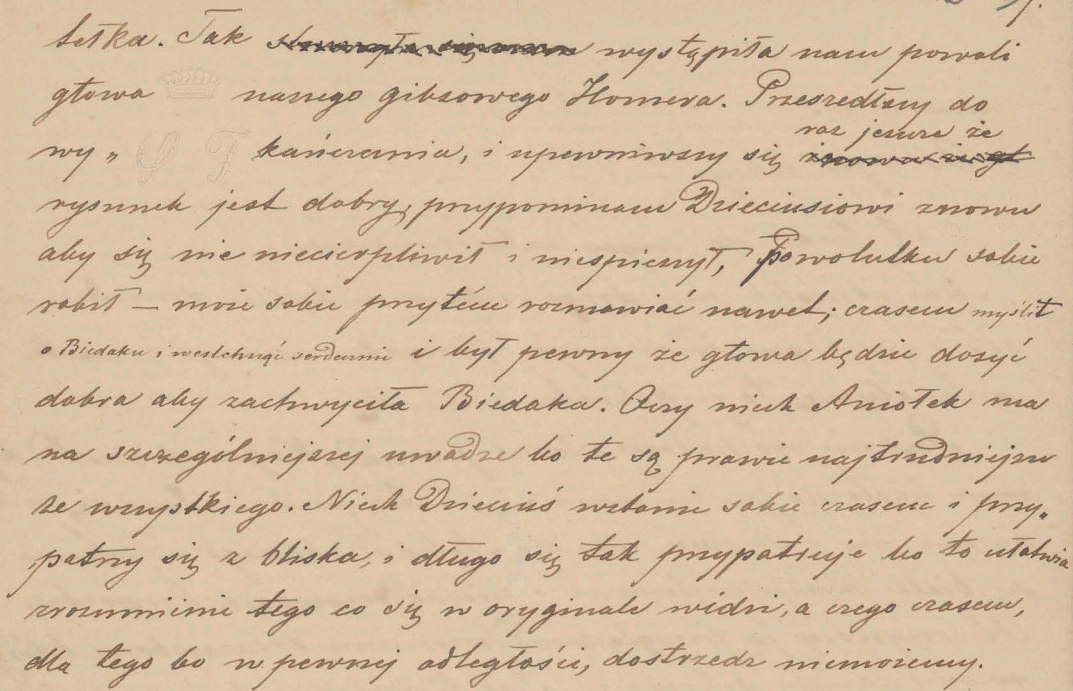 letka. Tak wystąpiła nam powoli
głowa naszego gibsowego Homera. Przeszedłszy do
raz jeszcze że
wy„ kańczania, i upewniwszy się
rysunek jest dobry, przypominam Dzieciusiowi znowu
aby się nie niecierpliwił i niespieszył, Powolutku sobie
robił — może sobie przytém rozmawiać nawet; czasem myślit
o Biedaku i westchnąć serdecznie i był pewny że głowa będzie dosyć
dobra aby zachwyciła Biedaka. Oczy niech Aniołek ma
na szczególniejszej uwadze bo te są prawie najtrudniejsze
ze wszystkiego. Niech Dzieciuś wstanie sobie czasem i przy„
patrzy się z bliska, i długo się tak przypatruje bo to ułatwia
zrozumienie tego co się w oryginale widzi, a czego czasem,
dla tego bo w pewnej odległości, dostrzedz niemożemy.